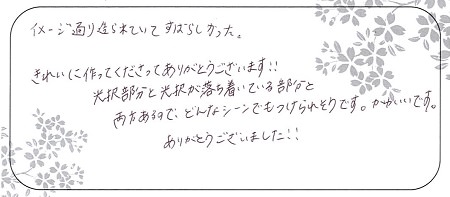 イメージ通り造られていてすばらしかった。
きれいに作ってくださってありがとうございます!!
光択部分と光択が落ち着いている部分と
両方あるので、どんなシーンでもつけられそうです。かわいいです。
ありがとうございました!!